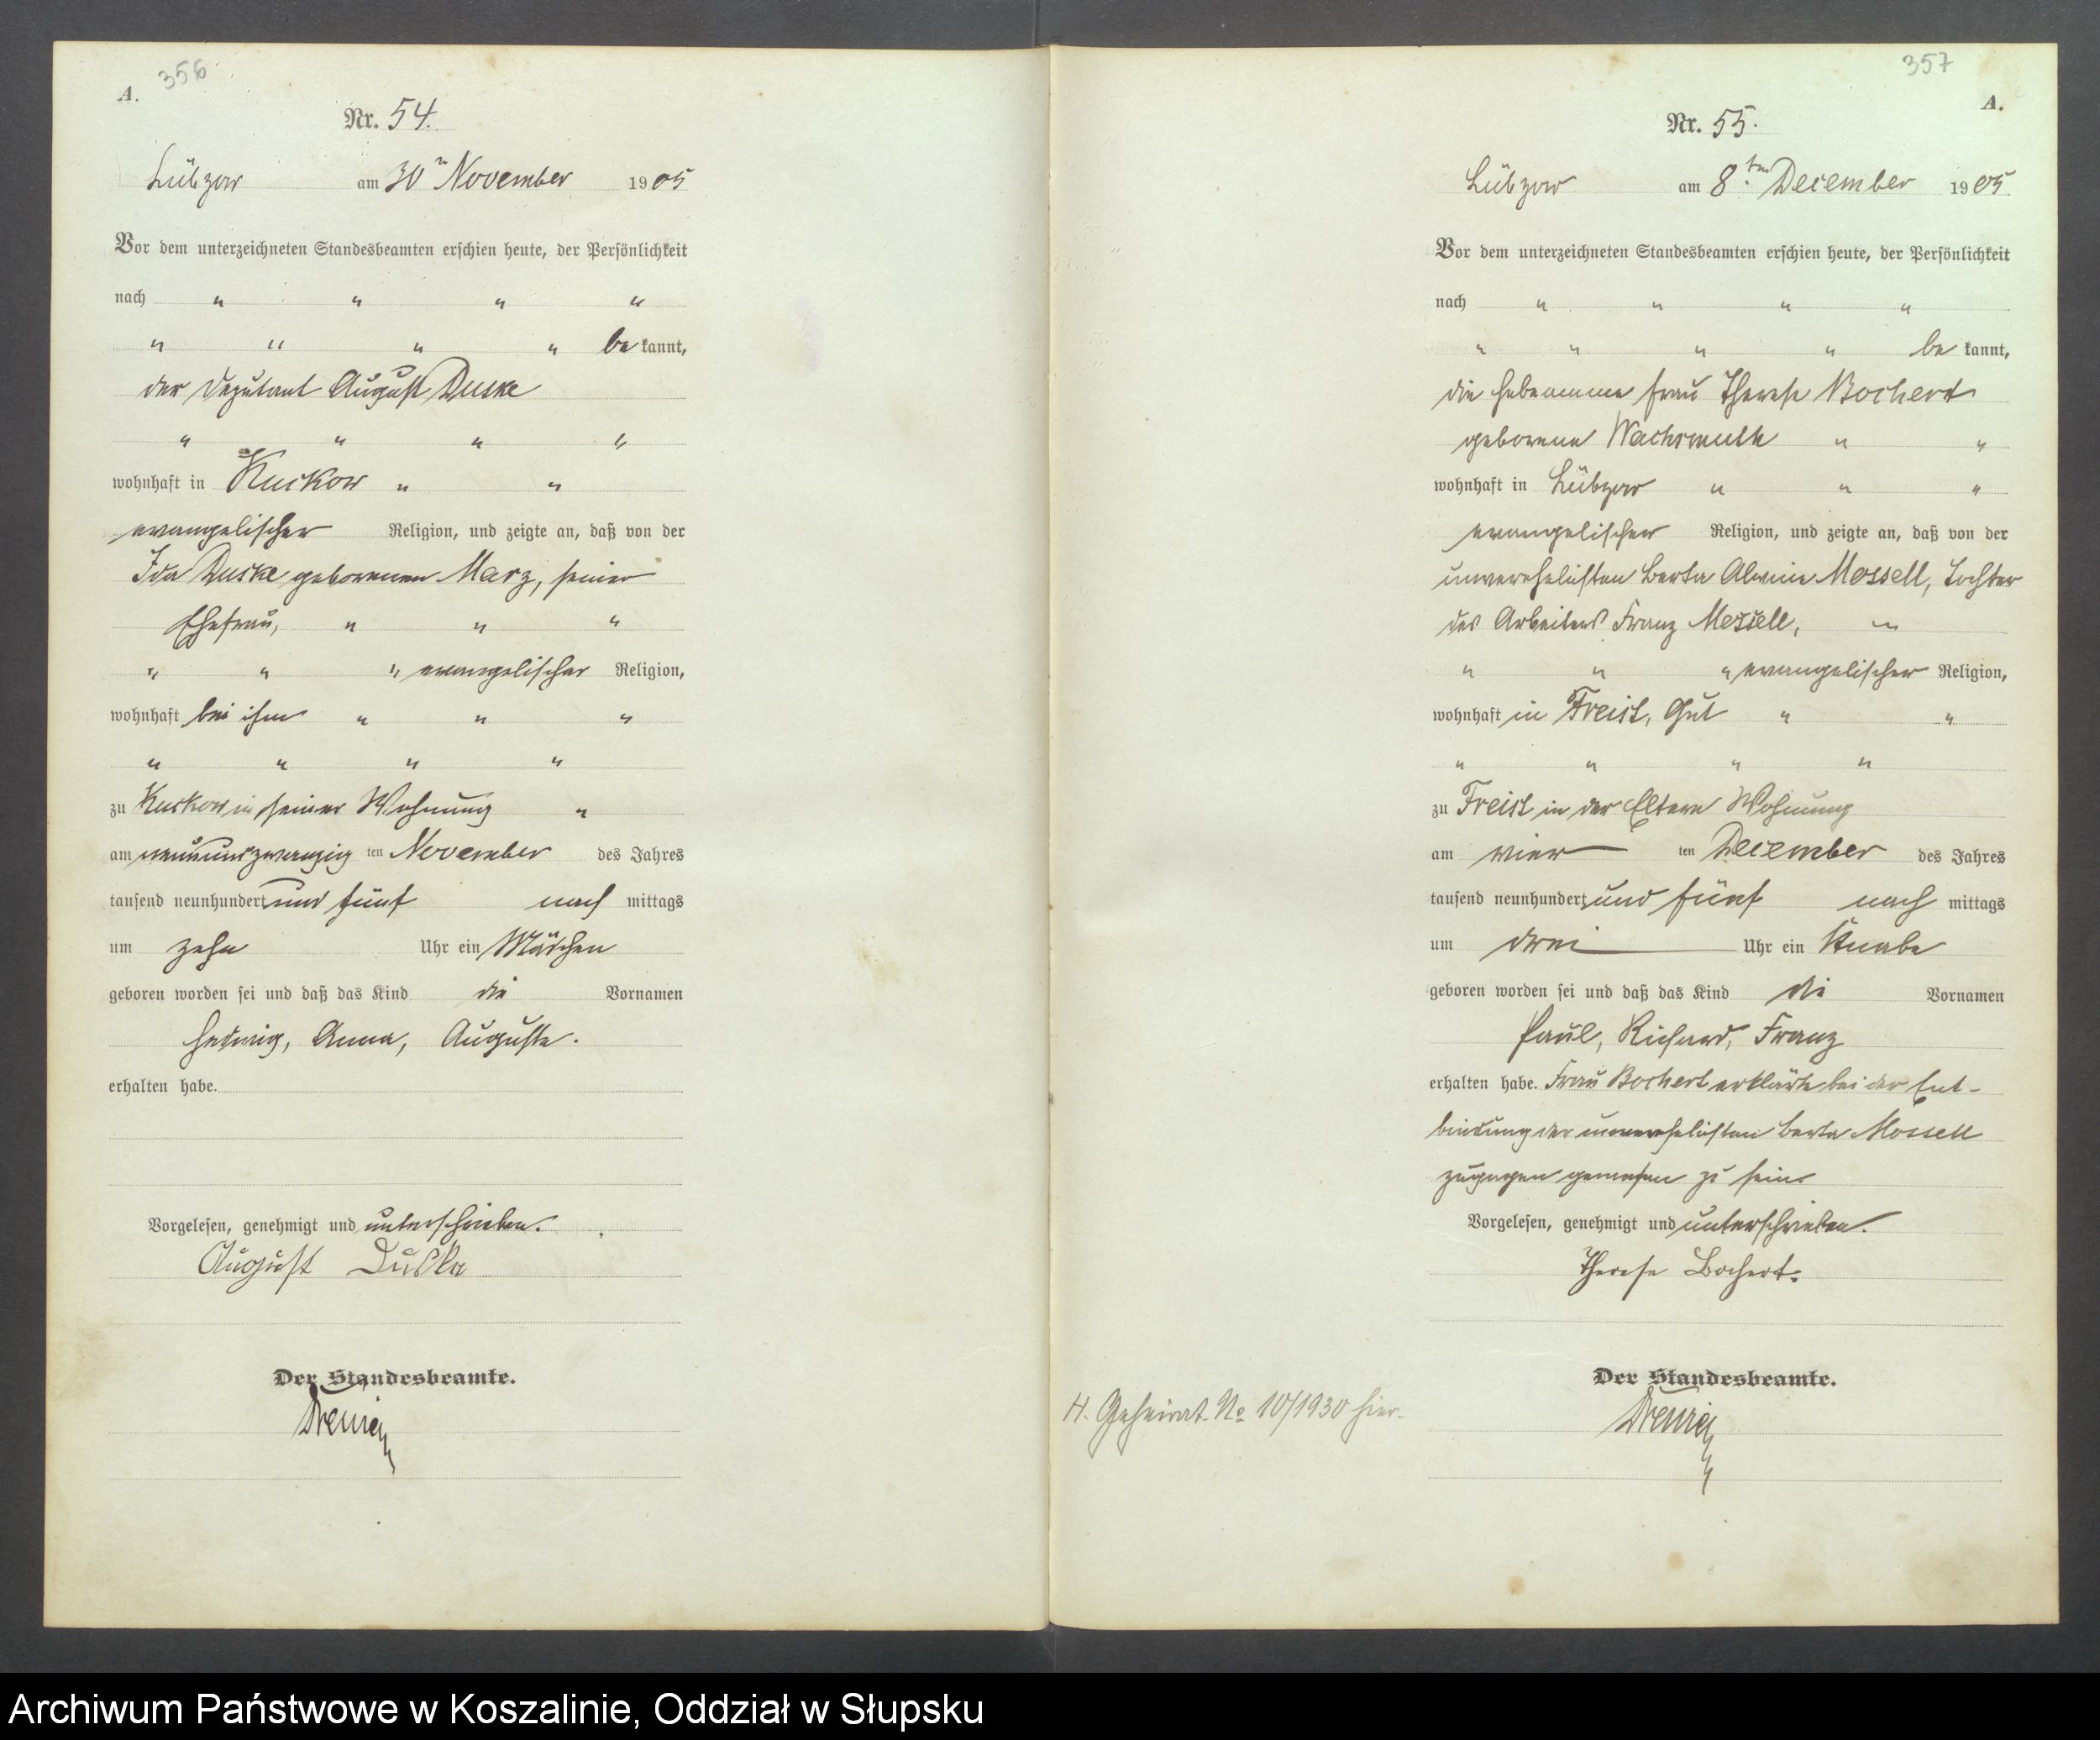 356
A.
Nr. 54.
Lübzow am 30n November 1905
Vor dem unterzeichneten Standesbeamten erschien heute, der Persönlichkeit
nach " " " "
" " " " be kannt,
der Deputant August Duske
" " " "
wohnhaft in Kuskow " "
evangelischer Religion, und zeigte an, daß von der
Ida Duske geborenen Marz, seiner
Ehefrau, " " "
" " " evangelischer Religion,
wohnhaft bei ihm " " "
" " " "
zu Kuskow in seiner Wohnung "
am neunundzwanzig ten November des Jahres
tausend neunhundert und fünf nach mittags
um zehn Uhr ein Mädchen
geboren worden sei und daß das Kind die Vornamen
Hedwig, Anna, Auguste.
erhalten habe.
Vorgelesen, genehmigt und unterschrieben.
August Duske
Der Standesbeamte.
357
A.
Nr. 55.
Lübzow am 8ten December 1905
Vor dem unterzeichneten Standesbeamten erschien heute, der Persönlichkeit
nach " " " "
" " " " be kannt,
die Hebamme Frau Therese Bochert
geborene Wachsmuth " "
wohnhaft in Lübzow " " "
evangelischer Religion, und zeigte an, daß von der
unverehelichten Berta Alwine Mossell, Tochter
des Arbeiters Franz Mossell, "
" " " evangelischer Religion,
wohnhaft in Freist, Gut " "
" " " "
zu Freist in der Eltern Wohnung
am vier ten December des Jahres
tausend neunhundert und fünf nach mittags
um drei Uhr ein Knabe
geboren worden sei und daß das Kind die Vornamen
Paul, Richard, Franz
erhalten habe. Frau Bochert erklärte bei der Ent-
bindung der unverehelichten Berta Mossell
zugegen gewesen zu sein.
Vorgelesen, genehmigt und unterschrieben.
Therese Bochert.
Der Standesbeamte.
H. Geheirat. No 10/1930 hier.
Archiwum Państwowe w Koszalinie, Oddział w Słupsku